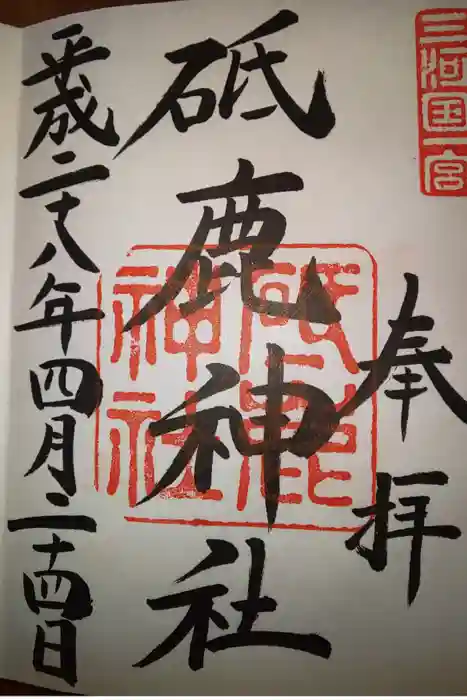 三河国一宮
奉拝
砥鹿神社
砥鹿神社
平成二十八年四月二十四日